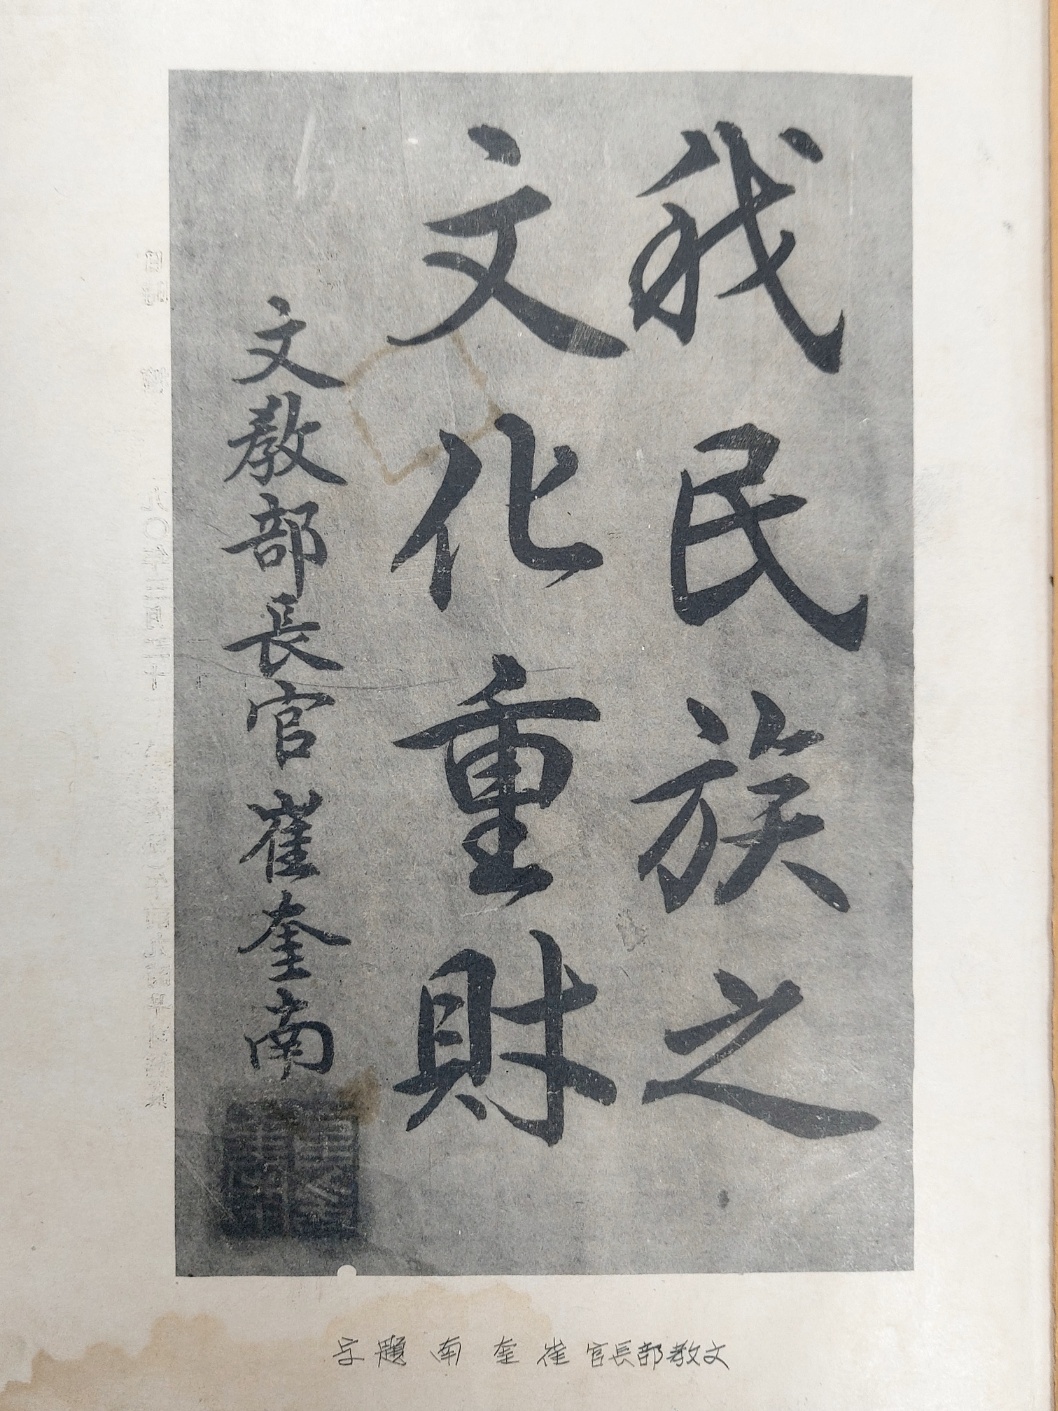 我民族之
文化重財
文教部長官 崔奎南
文教部長官 崔奎南 題字